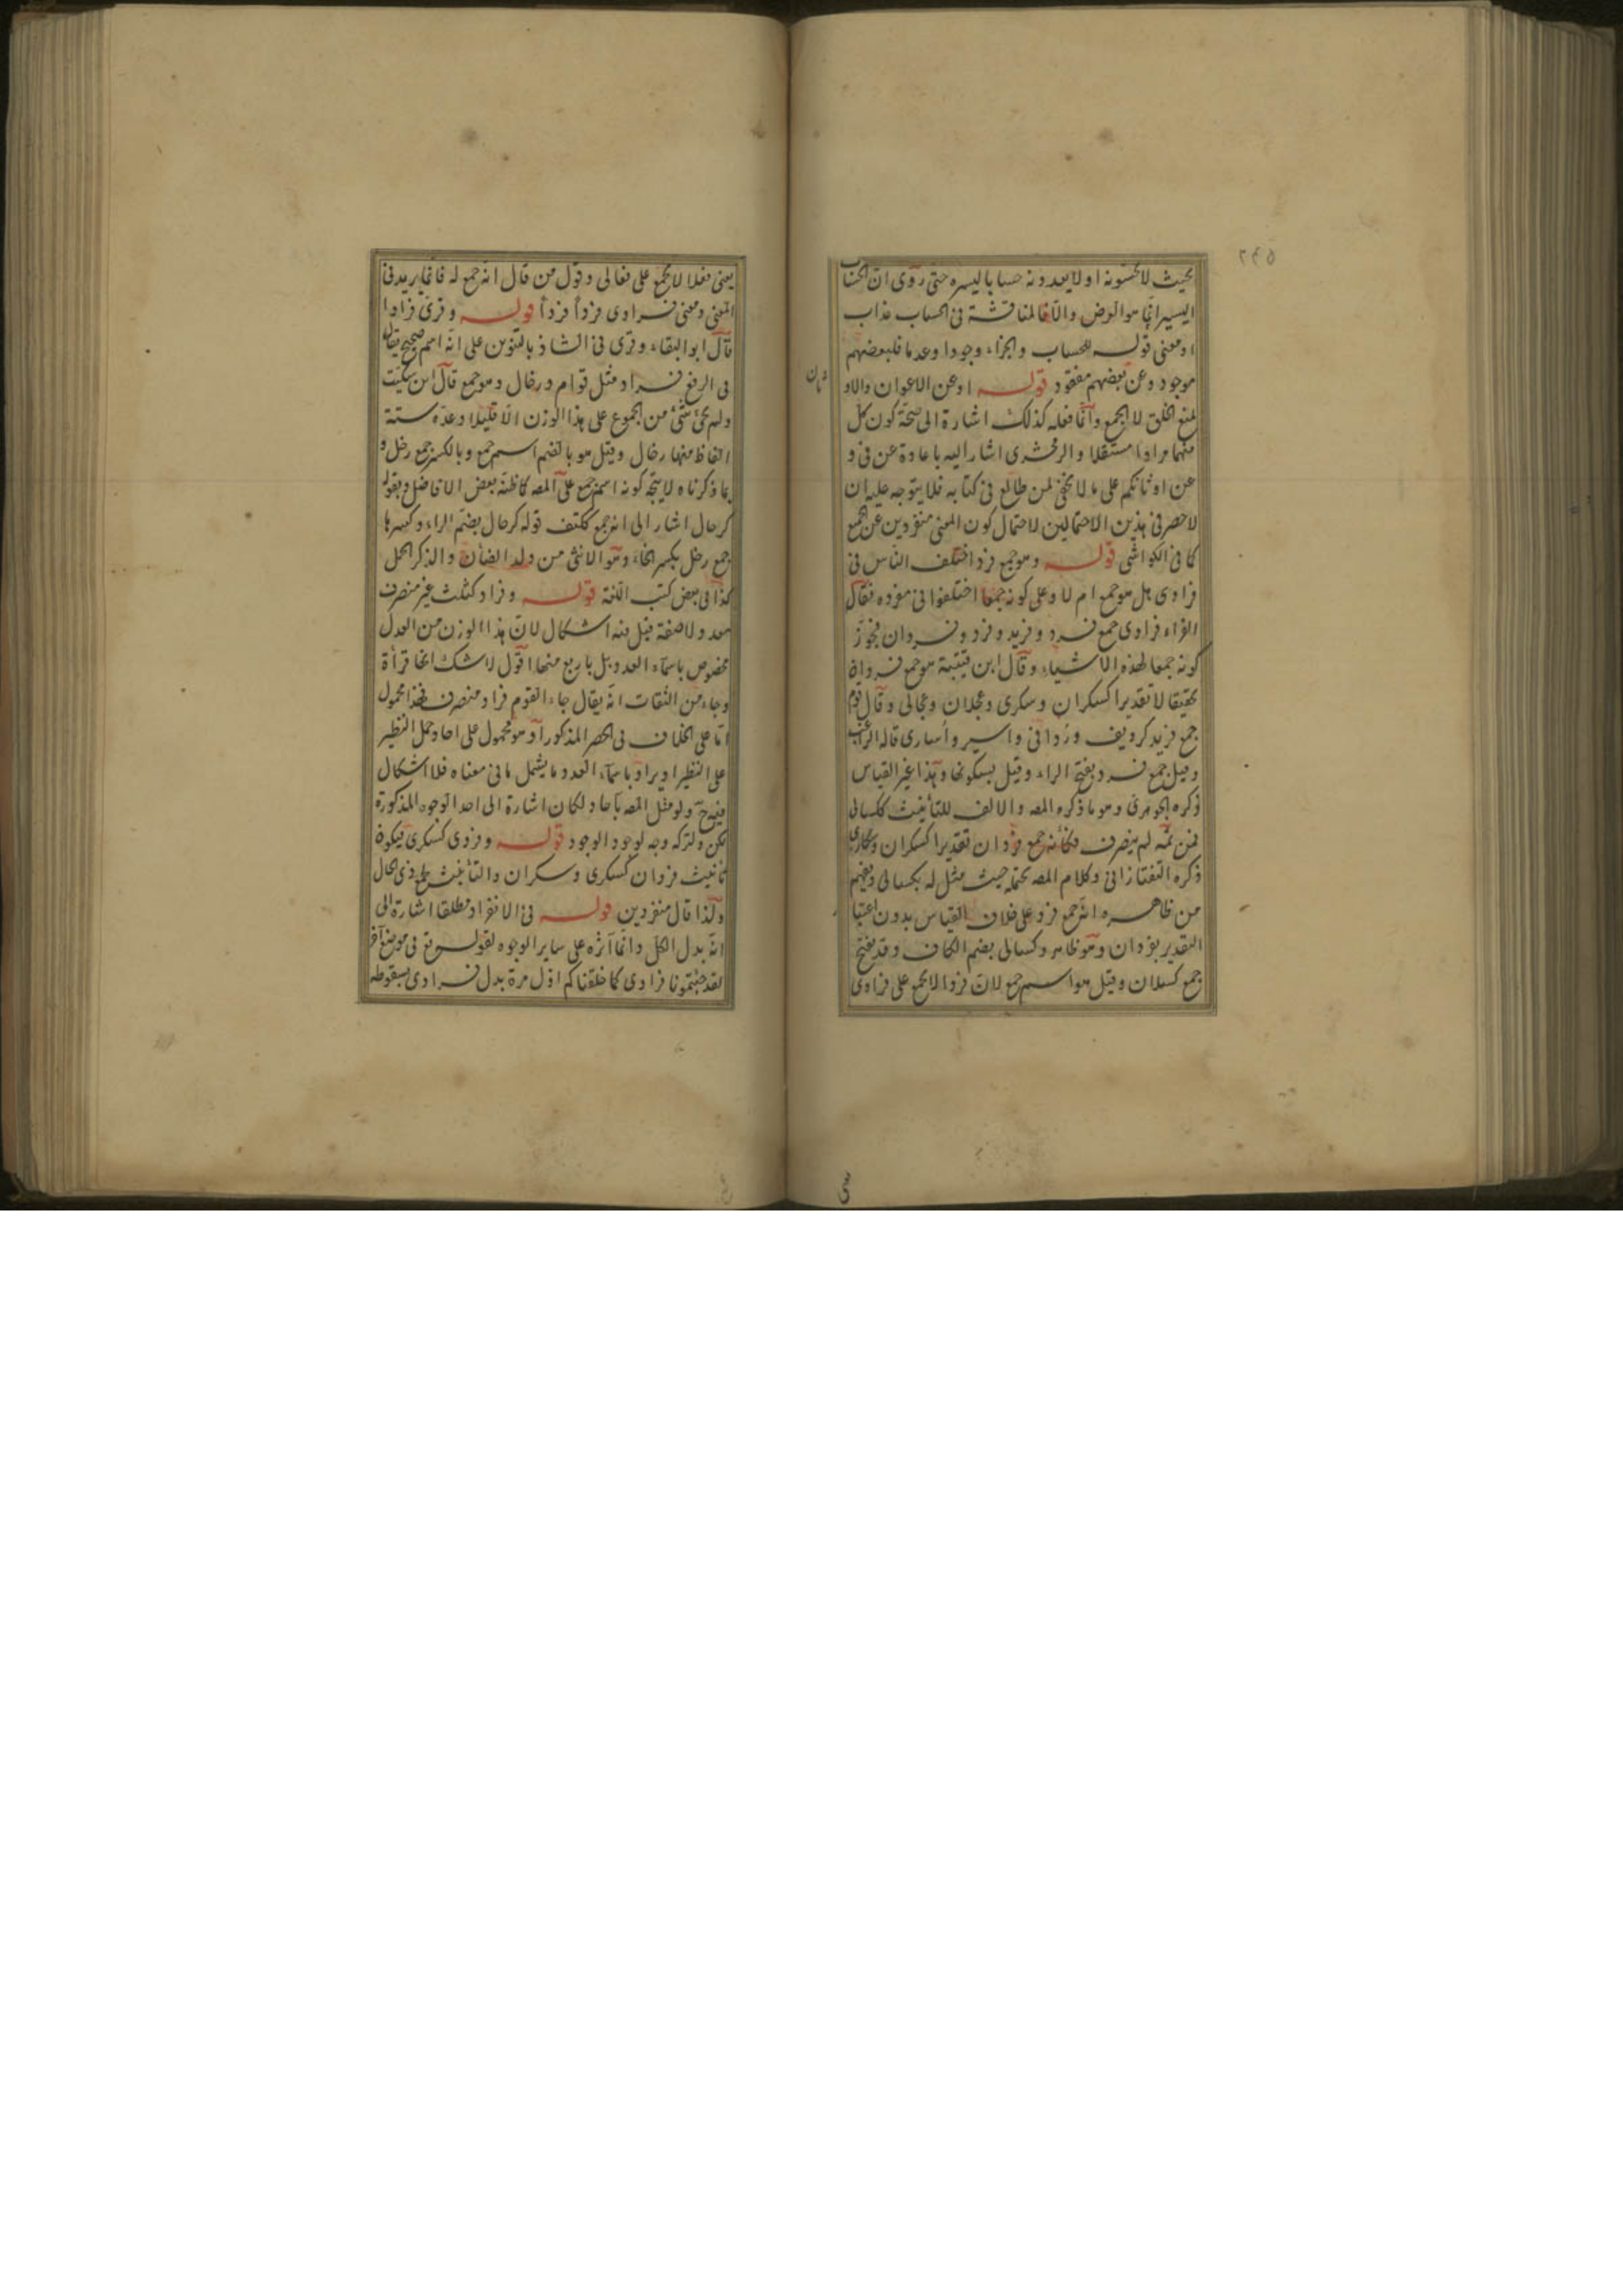 ٢٤٥
بحيث لا يحسونه او لا يعدونه حسابا ليسره حتى روى ان الحساب
اليسير انما هو العرض والا فالمناقشة فى الحساب عذاب
او معنى قوله للحساب والجزاء وجودا وعدما فلبعضهم
موجود وعن بعضهم مفقود قوله او عن الاعوان والاو
ثان
لمنع الخلو لا الجمع وانما فعله كذلك اشارة الى صحة كون كل
منهما مرادا مستقلا والزمخشرى اشار اليه باعادة عن فى و
عن اوثانكم على ما لا يخفى لمن طالع فى كتابه فلا يتوجه عليه ان
لا حصر فى هذين الاحتمالين لاحتمال كون المعنى منفردين عن الجمع
كما فى الكواشى قوله وهو جمع فرد اختلف الناس فى
فرادى هل هو جمع ام لا وعلى كونه جمعا اختلفوا فى مفرده فقال
الفراء فرادى جمع فرد وفريد وفرد وفردان فجوز
كونه جمعا لهذه الاشياء وقال ابن قتيبة هو جمع فردان
تحقيقا لا تقديرا كسكران وسكرى وعجلان وعجالى وقال قوم
جمع فريد كرديف وردافى واسير وأسارى قاله الراغب
وقيل جمع فرد بفتح الراء وقيل بسكونها وهذا غير القياس
ذكره الجوهرى وهو ما ذكره المصه والالف للتأنيث ككسالى
فمن ثمه لم ينصرف فكأنه جمع فردان تقديرا كسكران وسكارى
ذكره التفتازانى وكلام المصه يحتمله حيث مثل له بكسالى ويفهم
من ظاهره انه جمع فرد على خلاف القياس بدون اعتبا
التقدير بفردان وهو ظاهر وكسالى بضم الكاف وقد يفتح
جمع كسلان وقيل هو اسم جمع لان فردا لا يجمع على فرادى
يعنى فعلا لا يجمع على فعالى وقول من قال انه جمع له فانما يريد فى
المعنى ومعنى فرادى فردا فردا قوله وقرئ فرادا
قال ابو البقاء وقرئ فى الشاذ بالتنوين على انه اسم صحيح يقال
فى الرفع فراد مثل توام ورخال وهو جمع قال ابن سكيت
ولم يجئ شئ من الجموع على هذا الوزن الا قليلا وعده ستة
الفاظ منها رخال وقيل هو بالضم اسم جمع وبالكسر جمع رخل و
بما ذكرناه لا يتجه كونه اسم جمع على المصه كما ظنه بعض الافاضل وبقوله
كرخال اشار الى انه جمع ككتف قوله كرخال بضم الراء وكسرها
جمع رخل بكسر الخاء وهو الانثى من ولد الضأن والذكر الحمل
كذا فى بعض كتب اللغة قوله وفراد كثلث غير منصرف
معدولا صفة قيل فيه اشكال لان هذا الوزن من العدل
مخصوص باسماء العدد بل باربع منها اقول لا شك انها قرأة
وجاء من الثقات انه يقال جاء القوم فراد منصرف فهذا محمول
اما على الخلاف فى الحصر المذكور او هو محمول على احاد وحمل النظير
على النظير او يراد باسماء العدد ما يشمل ما فى معناه فلا اشكال
فيه ح ولو مثل المصه باحاد لكان اشارة الى احد الوجوه المذكورة
لكن ولتركه وجه لوجود الوجود قوله وفردى كسكرى فيكون
تأنيث فردان كسكرى وسكران والتأنيث لجمع ذى الحال
ولذا قال منفردين قوله فى الانفراد مطلقا اشارة الى
انه بدل الكل وانما آثره على سائر الوجوه لقوله تع فى موضع آخر
لقد جئتمونا فرادى كما خلقناكم اول مرة بدل فرادى بسقوطه